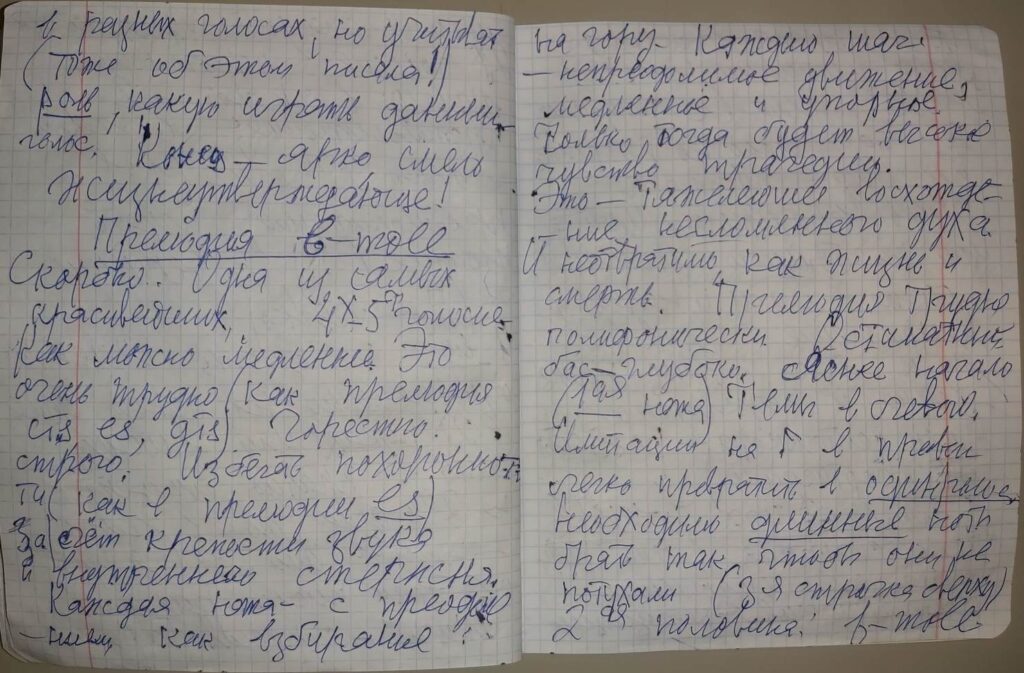 в разных голосах, но учитывать
(тоже об этом писала!)
роль, какую играть данный
голос. Конец – ярко смело
жизнеутверждающе!
Прелюдия b-moll
Скорбно.. Одна из самых
красивейших, 4х-5ти голосие
как можно медленнее. Это
очень трудно (как прелюдия
cis es, dis) Горестно.
строго. Избегать похоронно
ти (как в прелюдии es)
за счёт крепости звука
и внутреннего стержня.
Каждая нота – с преодоле
–нием, как взбирание
на гору. Каждый шаг
– непреодолимое движение,
медленное и упорное,
Только тогда будет высоко
чувство трагедии.
Это – тяжелейшее восхожде-
–ние, несломленного духа
И неотвратимо, как жизнь и
смерть. Прелюдия трудно
полифонически Остинатный
бас – глубоко. Яснее начало
(1ая нота) темы в левого.
Имитации на Г в правой
легко превратить в
необходимо длинные ноты
брать так чтобы они не
потухали (3я строчка сверху)
2ая половина: b-moll